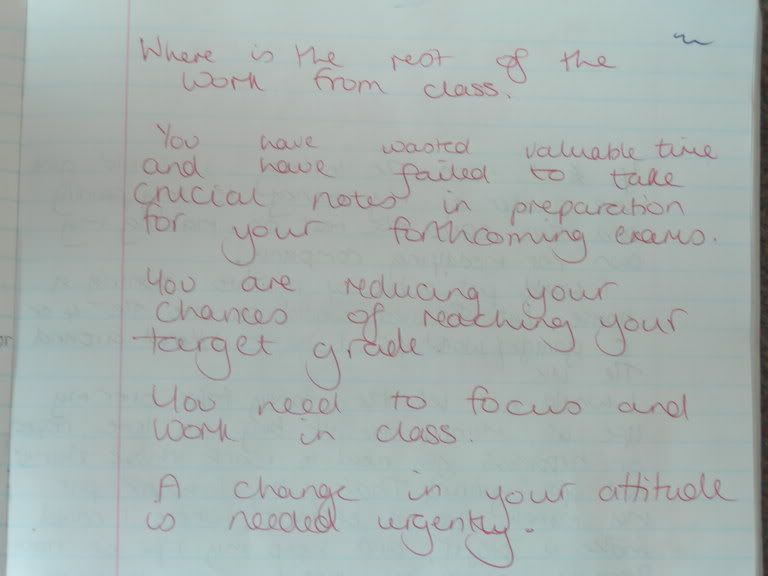 Where is the rest of the
work from class.
You have wasted valuable time
and have failed to take
crucial notes in preparation
for your forthcoming exams.
You are reducing your
chances of reaching your
target grade
You need to focus and
work in class.
A change in your attitude
is needed urgently.